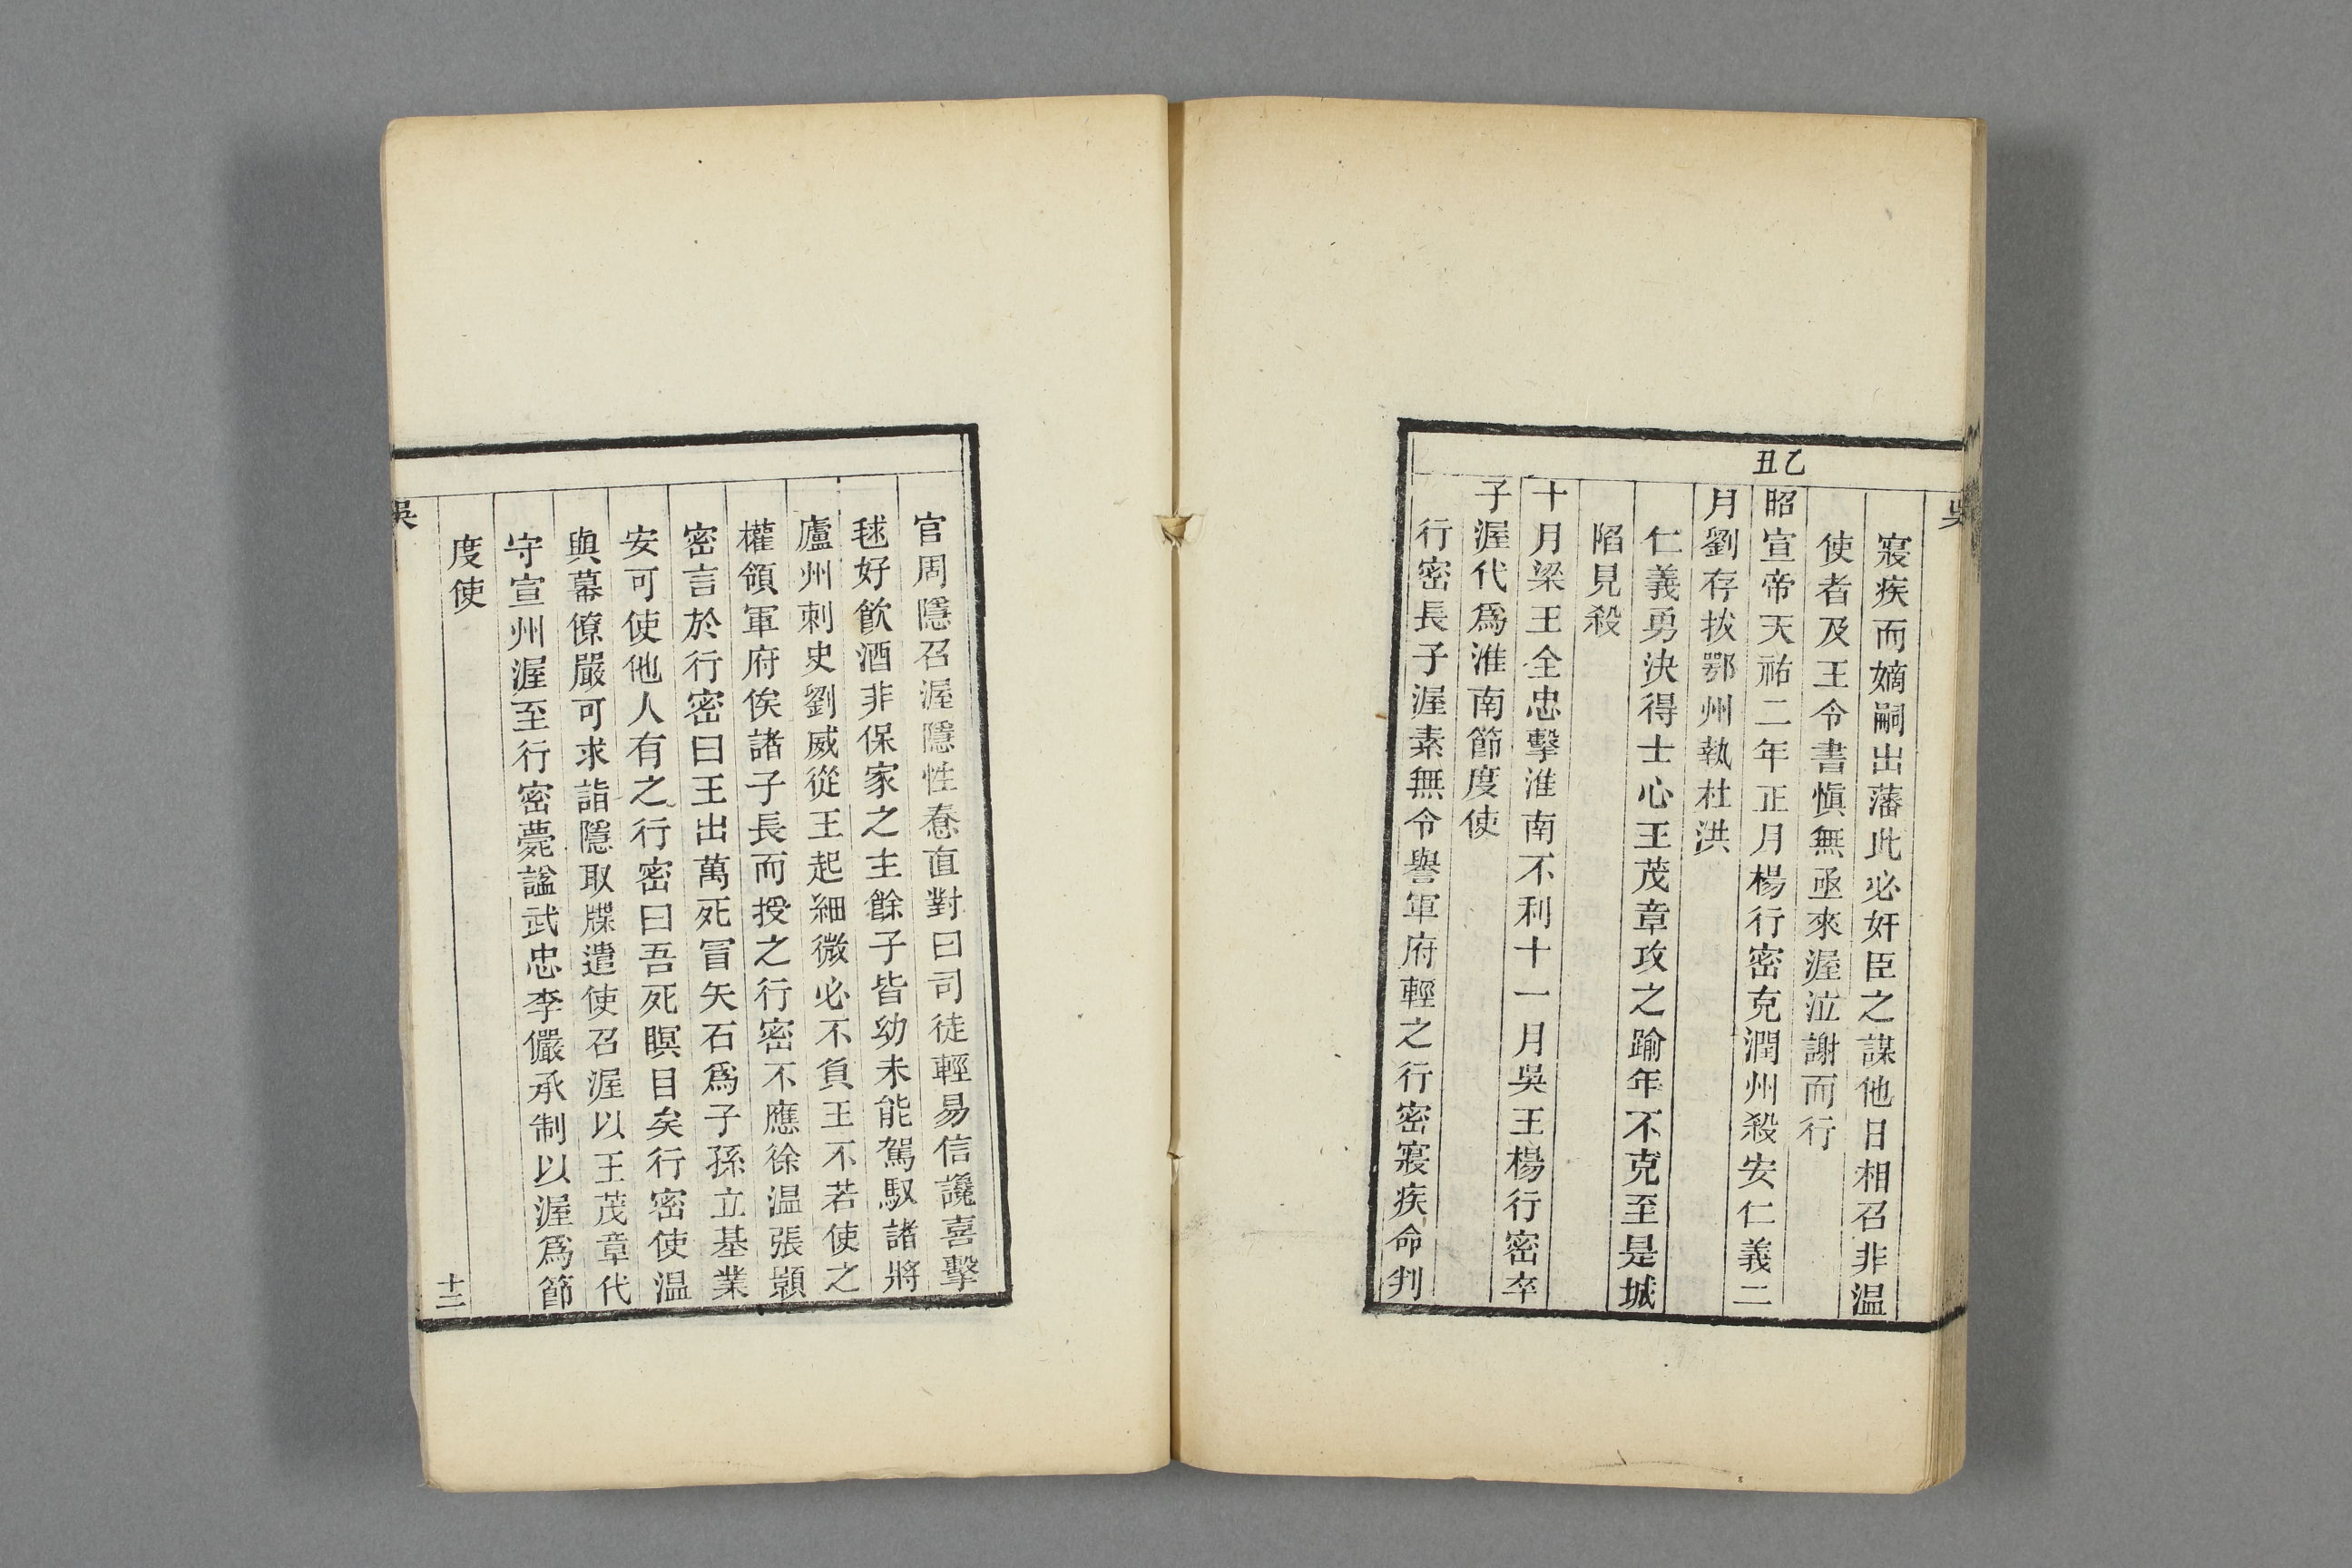 吳
寢疾而嫡嗣出藩此必奸臣之謀他日相召非温
使者及王令書愼無亟來渥泣謝而行
乙丑
昭宣帝天祐二年正月楊行密克潤州殺安仁義二
月劉存拔鄂州執杜洪
仁義勇決得士心王茂章攻之踰年不克至是城
陷見殺
十月梁王全忠擊淮南不利十一月吳王楊行密卒
子渥代爲淮南節度使
行密長子渥素無令譽軍府輕之行密寢疾命判
官周隱召渥隱性惷直對曰司徒輕易信讒喜擊
毬好飮酒非保家之主餘子皆幼未能駕馭諸將
廬州刺史劉威從王起細微必不負王不若使之
權領軍府俟諸子長而授之行密不應徐温張顥
密言於行密曰王出萬死冒矢石爲子孫立基業
安可使他人有之行密曰吾死瞑目矣行密使温
與幕僚嚴可求詣隱取牒遣使召渥以王茂章代
守宣州渥至行密薨謚武忠李儼承制以渥爲節
度使
吳
十二